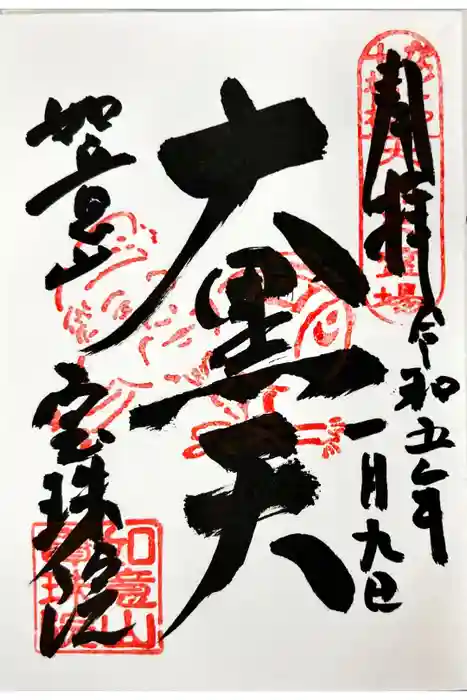 奉拝
令和五年
一月九日
大黒天
如意山
宝珠院
如意山
寶珠院